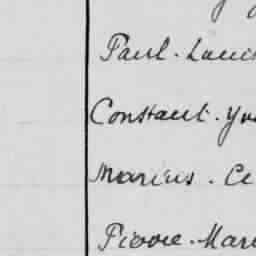 Paul. Louis
Constant. Yv
Marius. Ce
Pierre. Mari